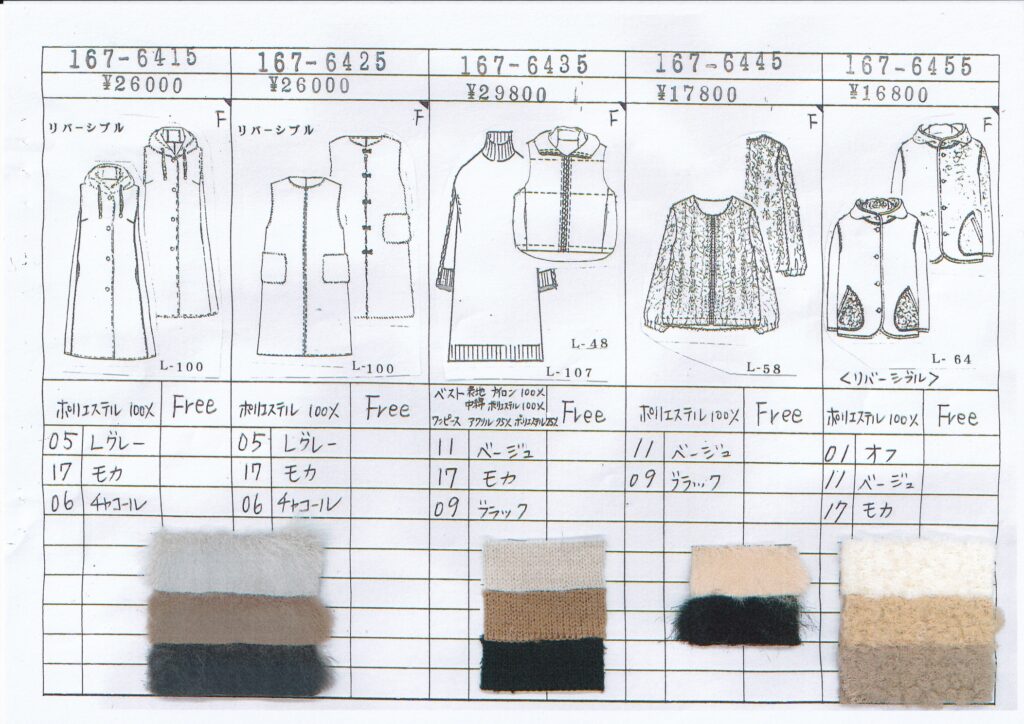 167-6415
¥26000
リバーシブル
F
L-100
ポリエステル 100%
Free
05 Lグレー
17 モカ
06 チャコール
167-6425
¥26000
リバーシブル
F
L-100
ポリエステル 100%
Free
05 Lグレー
17 モカ
06 チャコール
167-6435
¥29800
F
L-48
L-107
ベスト 表地 ナイロン 100%
中綿 ポリエステル 100%
ワンピース アクリル 75% ポリエステル 25%
Free
11 ベージュ
17 モカ
09 ブラック
167-6445
¥17800
F
L-58
ポリエステル 100%
Free
11 ベージュ
09 ブラック
167-6455
¥16800
F
L-64
<リバーシブル>
ポリエステル 100%
Free
01 オフ
11 ベージュ
17 モカ